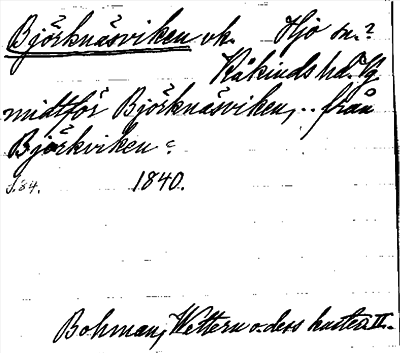 Björknäsviken vk. Hjo sn.?
Kåkinds hd. Vg
midtför Björknäsviken, .. från
Björkviken?
s. 84. 1840.
Bohman, Wettern o. dess kuster II.